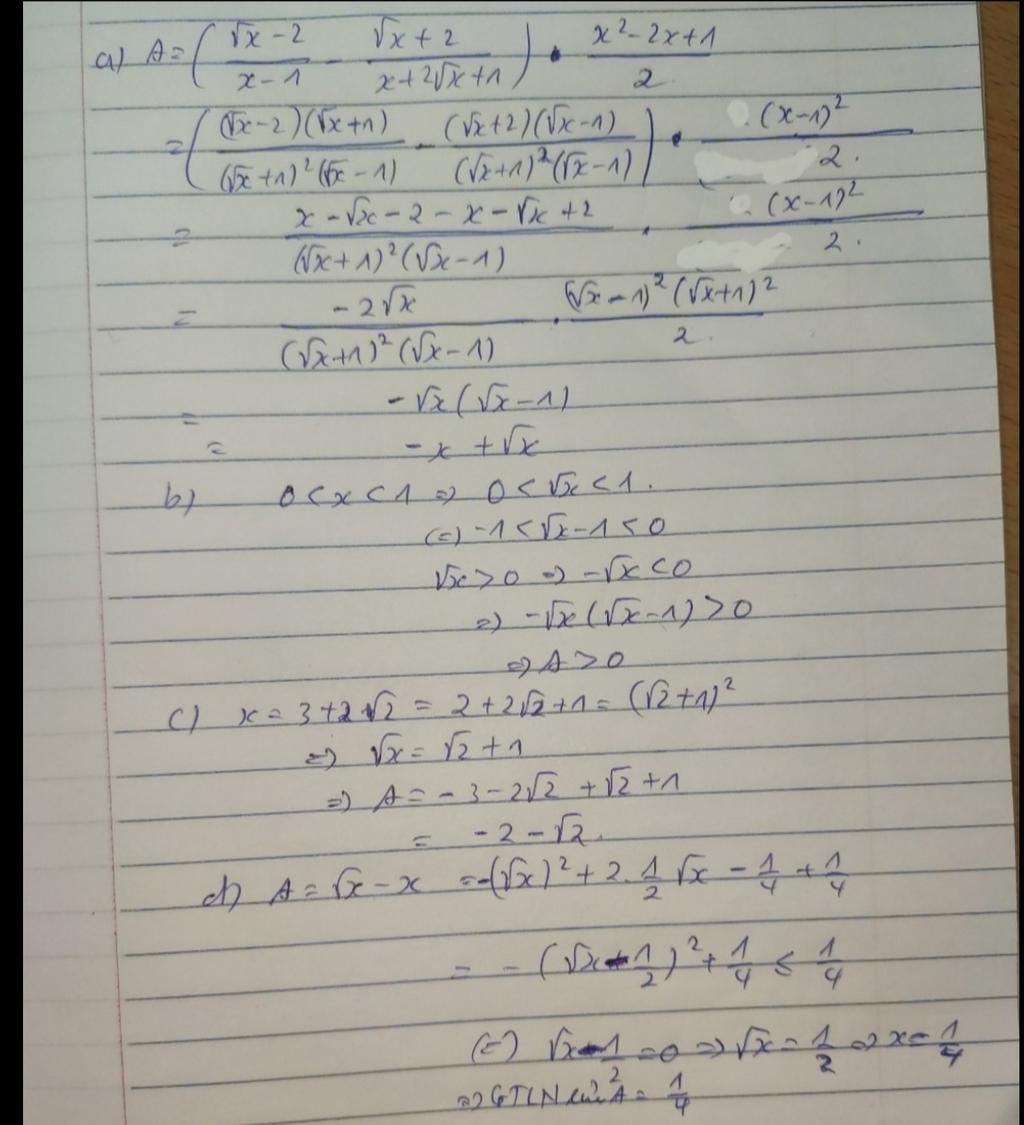 a) A = ( (√x - 2)/(x - 1) - (√x + 2)/(x + 2√x + 1) ) . (x² - 2x + 1)/2
= ( (√x - 2)(√x + 1)/((√x + 1)²(√x - 1)) - (√x + 2)(√x - 1)/((√x + 1)²(√x - 1)) ) . (x - 1)²/2.
= (x - √x - 2 - x - √x + 2)/((√x + 1)²(√x - 1)) . (x - 1)²/2.
= -2√x/((√x + 1)²(√x - 1)) . (√x - 1)²(√x + 1)²/2.
= -√x(√x - 1)
= -x + √x
b) 0 < x < 1 => 0 < √x < 1.
(=) -1 < √x - 1 < 0
√x > 0 => -√x < 0
=> -√x(√x - 1) > 0
=> A > 0
c) x = 3 + 2√2 = 2 + 2√2 + 1 = (√2 + 1)²
=> √x = √2 + 1
=> A = -3 - 2√2 + √2 + 1
= -2 - √2.
d) A = √x - x = -(√x)² + 2.1/2 √x - 1/4 + 1/4
= -(√x - 1/2)² + 1/4 ≤ 1/4
(=) √x - 1/2 = 0 => √x = 1/2 => x = 1/4
=> GTLN của A = 1/4